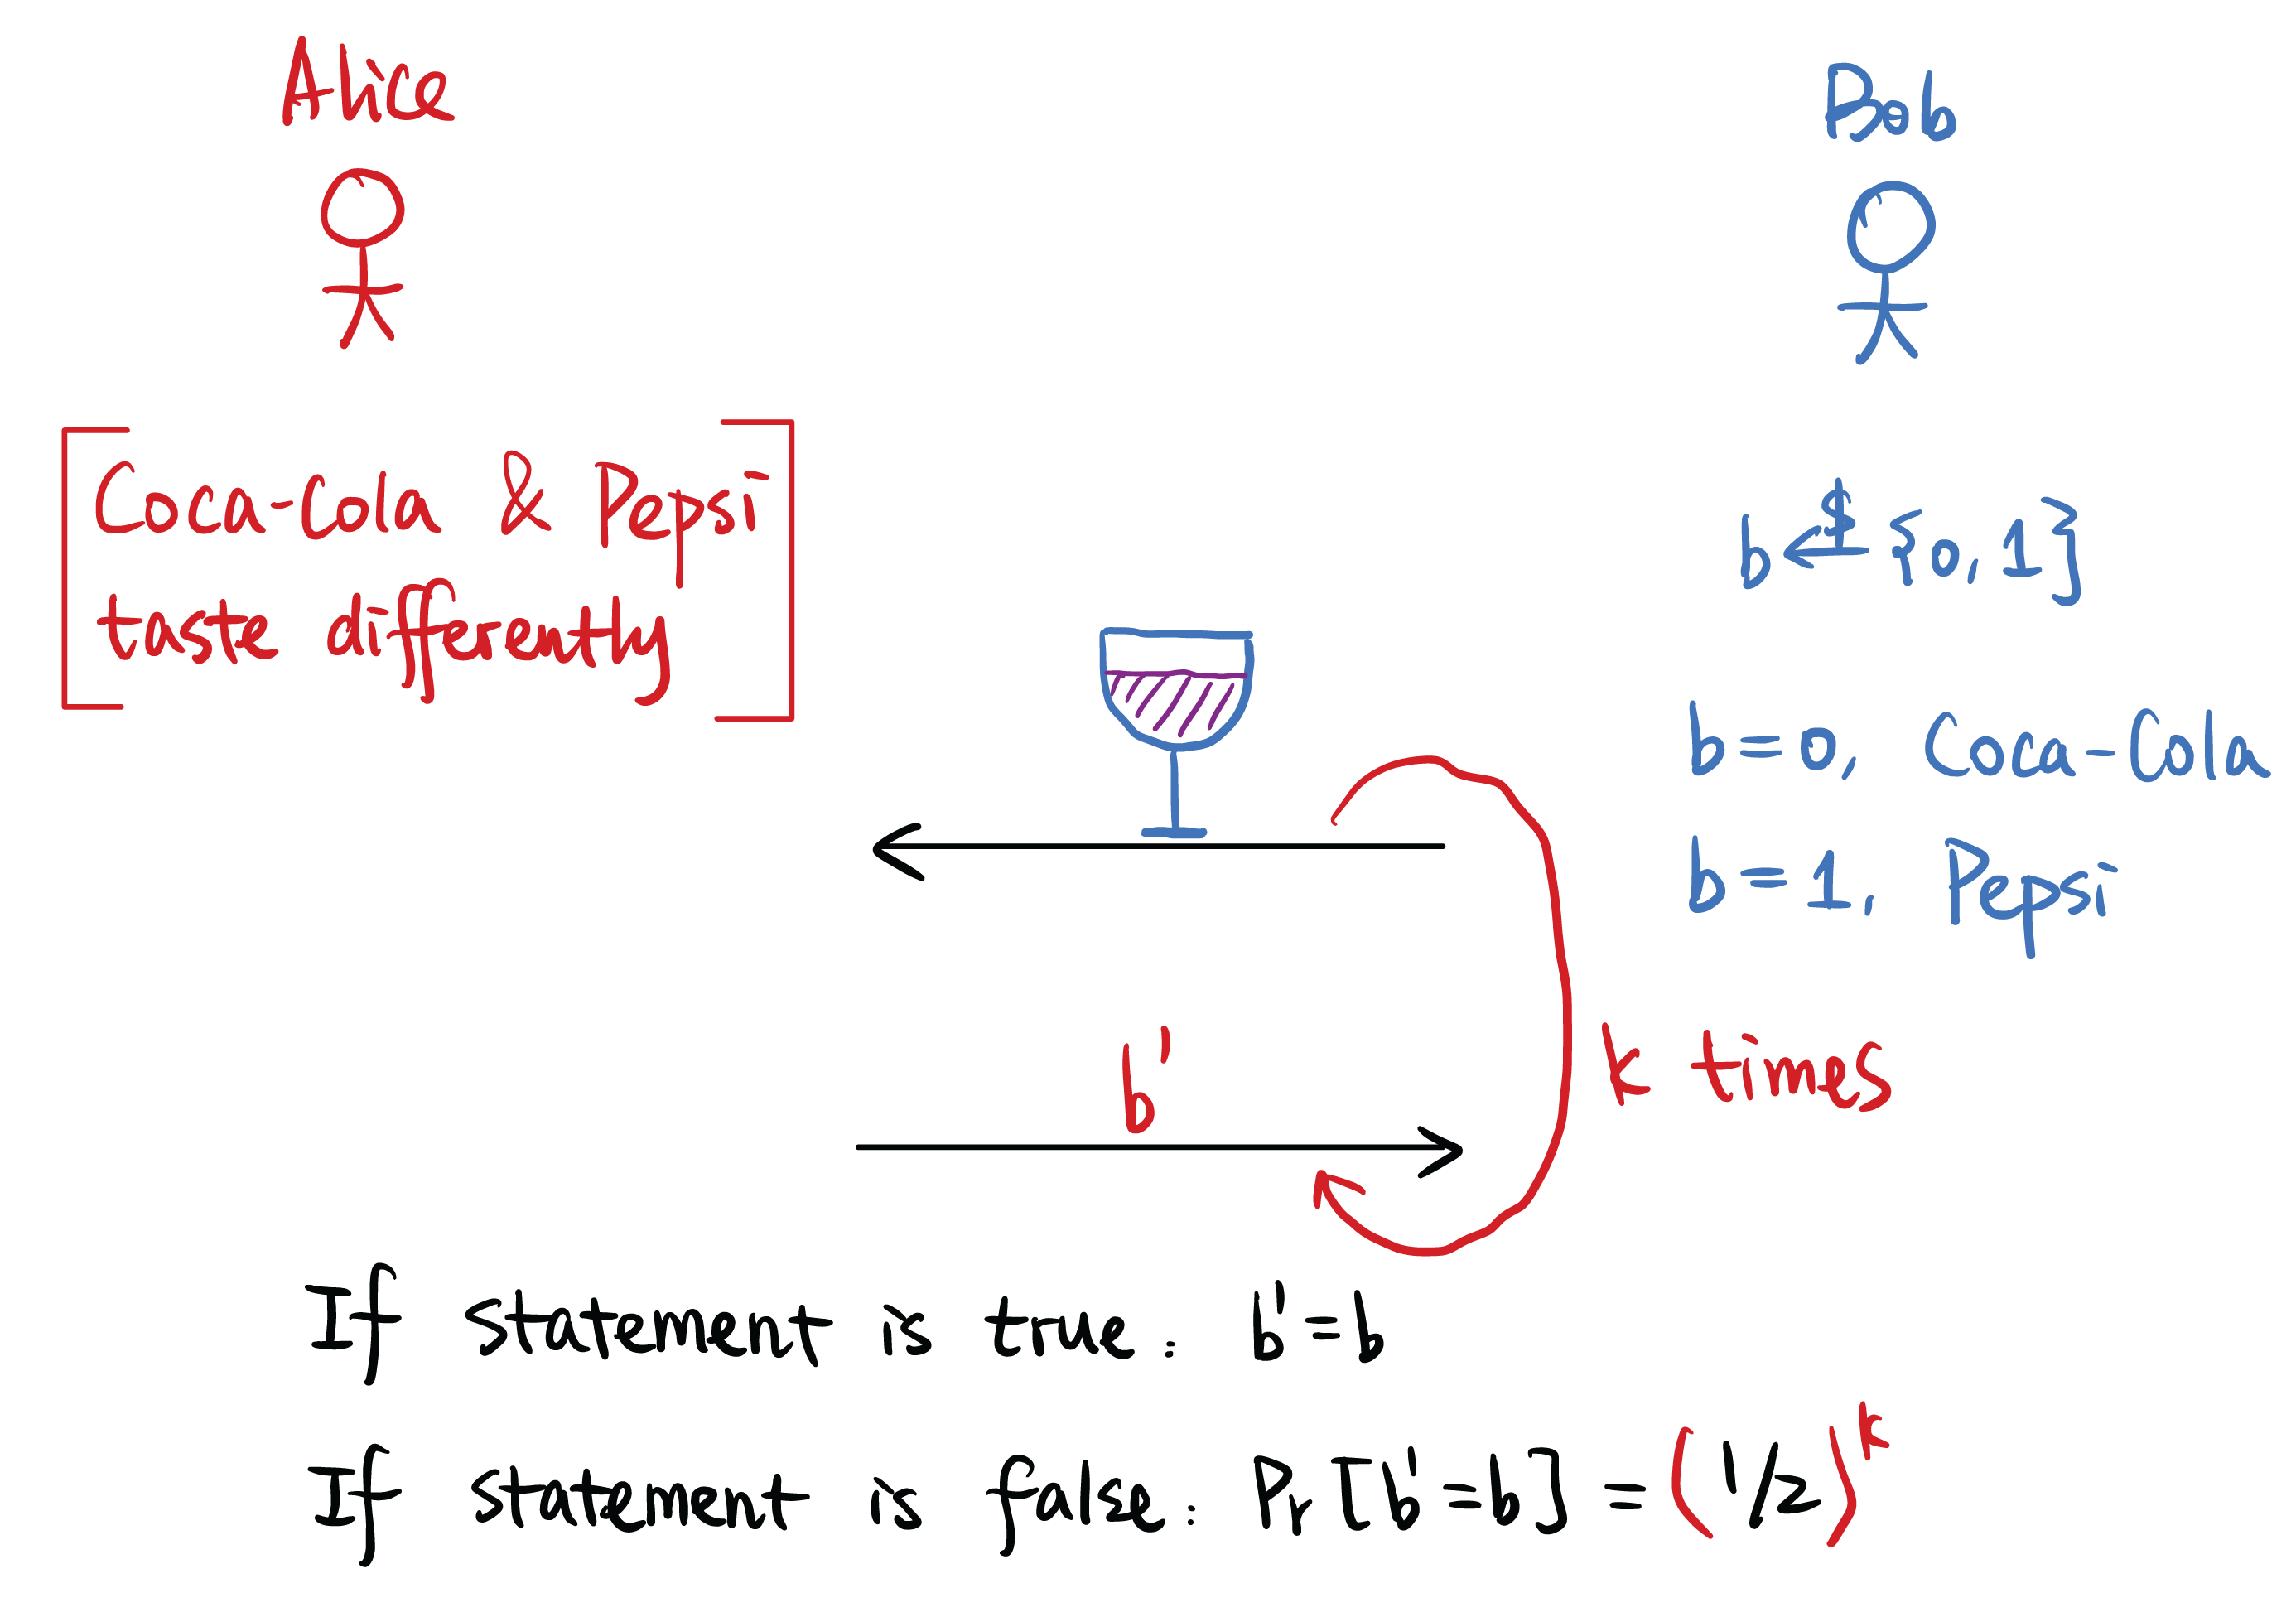 Alice
Bob
Coca-cola & Pepsi
taste differently
b ←$ {0,1}
b=0, Coca-Cola
b=1, Pepsi
k times
b'
If statement is true: b'=b
If statement is false: Pr[b'=b] = (1/2)^k